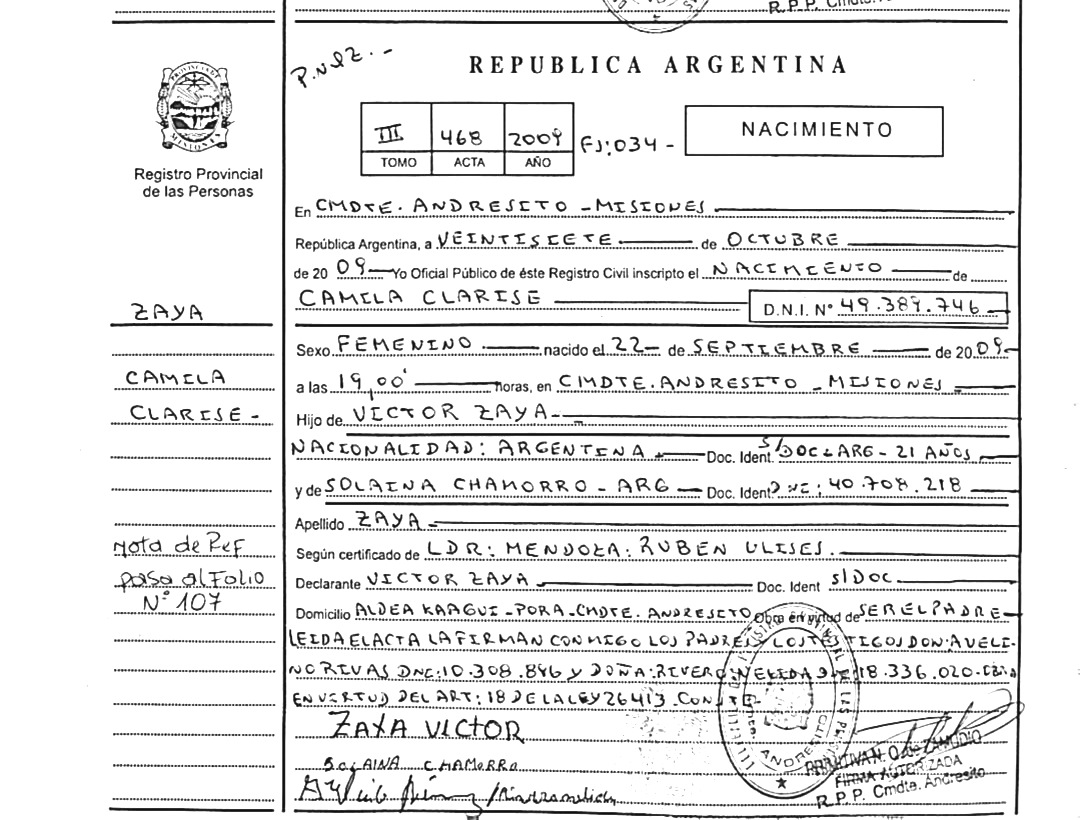 R. P. P. Cmdte.
P.N.I.Z.-
REPUBLICA ARGENTINA
PROVINCIA DE MISIONES
Registro Provincial
de las Personas
III 468 2009 FJ:034-
TOMO ACTA AÑO
NACIMIENTO
En CMDTE. ANDRESITO - MISIONES
República Argentina, a VEINTISIETE de OCTUBRE
de 20 09 Yo Oficial Público de éste Registro Civil inscripto el NACIMIENTO de
CAMILA CLARISE D.N.I. N° 49.389.746
ZAYA
Sexo FEMENINO nacido el 22 de SEPTIEMBRE de 20 09
CAMILA
a las 19,00' horas, en CMDTE. ANDRESITO - MISIONES
CLARISE-
Hijo de VICTOR ZAYA
NACIONALIDAD: ARGENTINA Doc. Ident. S/DOC ARG - 21 AÑOS
y de SOLAINA CHAMORRO - ARG Doc. Ident DNI: 40.708.218
Apellido ZAYA
Nota de Ref
Según certificado de LDR: MENDOZA: RUBEN ULISES.
pasa al Folio
Declarante VICTOR ZAYA Doc. Ident S/DOC
N° 107
Domicilio ALDEA KAAGUI-PORA-CMDTE. ANDRESITO Obra en virtud de SER EL PADRE
LEIDA EL ACTA LA FIRMAN CONMIGO LOS PADRES Y LOS TESTIGOS DON: AVELI-
NO RIVAS DNI: 10.308.846 Y DOÑA: RIVERO NELIDA DNI: 18.336.020
EN VIRTUD DEL ART: 18 DE LA LEY 26413. CONSTE-
ZAYA VICTOR
SOLAINA CHAMORRO
ANDRESITO
O. de ZAMUDIO
FIRMA AUTORIZADA
R.P.P. Cmdte. Andresito